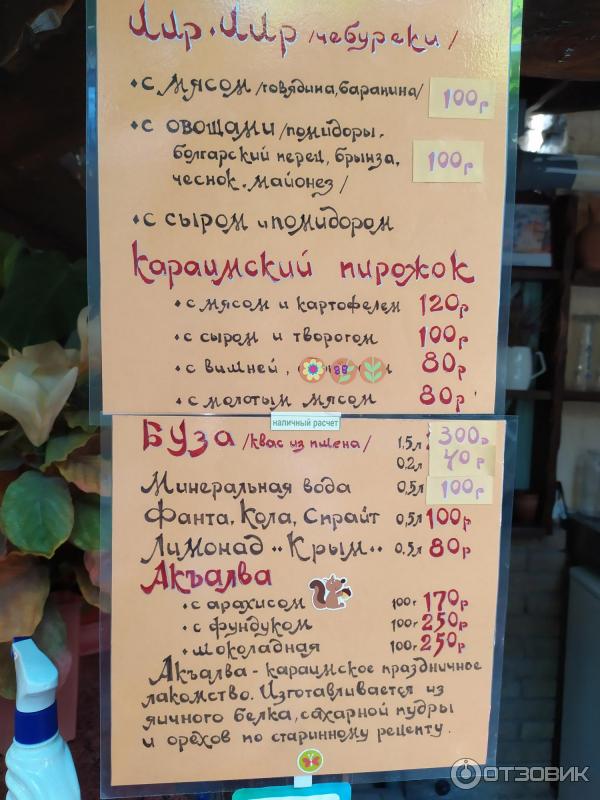 Яяр. Яяр /чебуреки/
• с мясом /говядина, баранина/ 100р
• с овощами /помидоры,
болгарский перец, брынза, 100р
чеснок. майонез/
• с сыром и помидором
Караимский пирожок
• с мясом и картофелем 120р
• с сыром и творогом 100р
• с вишней, 80р
• с молотым мясом 80р
наличный расчет
Буза /квас из пшена/ 1.5л 300р
0.2л 40р
Минеральная вода 0,5л 100р
Фанта, Кола, Спрайт 0,5л 100р
Лимонад "Крым" 0.5л 80р
Акъалва
• с арахисом 100г 170р
• с фундуком 100г 250р
• шоколадная 100г 250р
Акъалва - караимское праздничное
лакомство. Изготавливается из
яичного белка, сахарной пудры
и орехов по старинному рецепту.
ОТЗОВИК